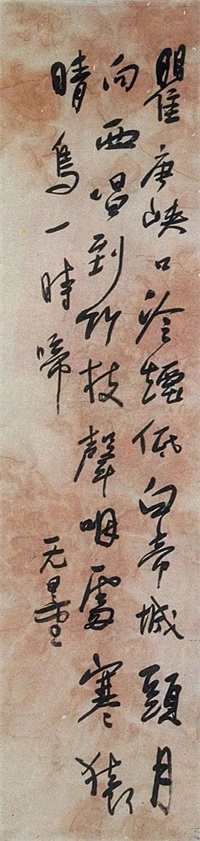 瞿唐峽口冷煙低白帝城頭月
向西唱到竹枝聲咽處寒猿
晴鳥一時啼
无量